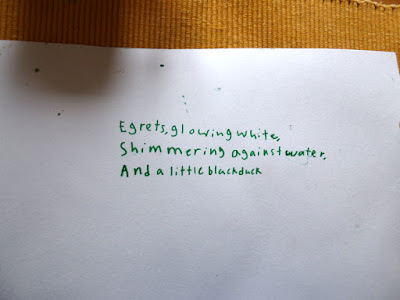 Egrets, glowing white,
Shimmering against water,
And a little black duck